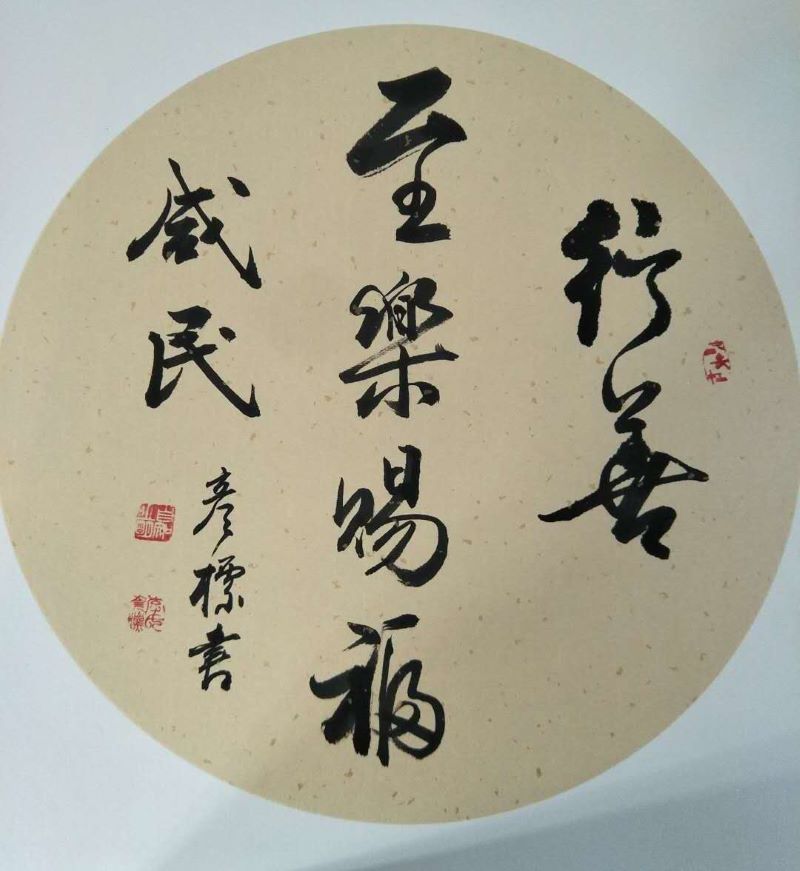 行善
至樂賜福
咸民
彦標書